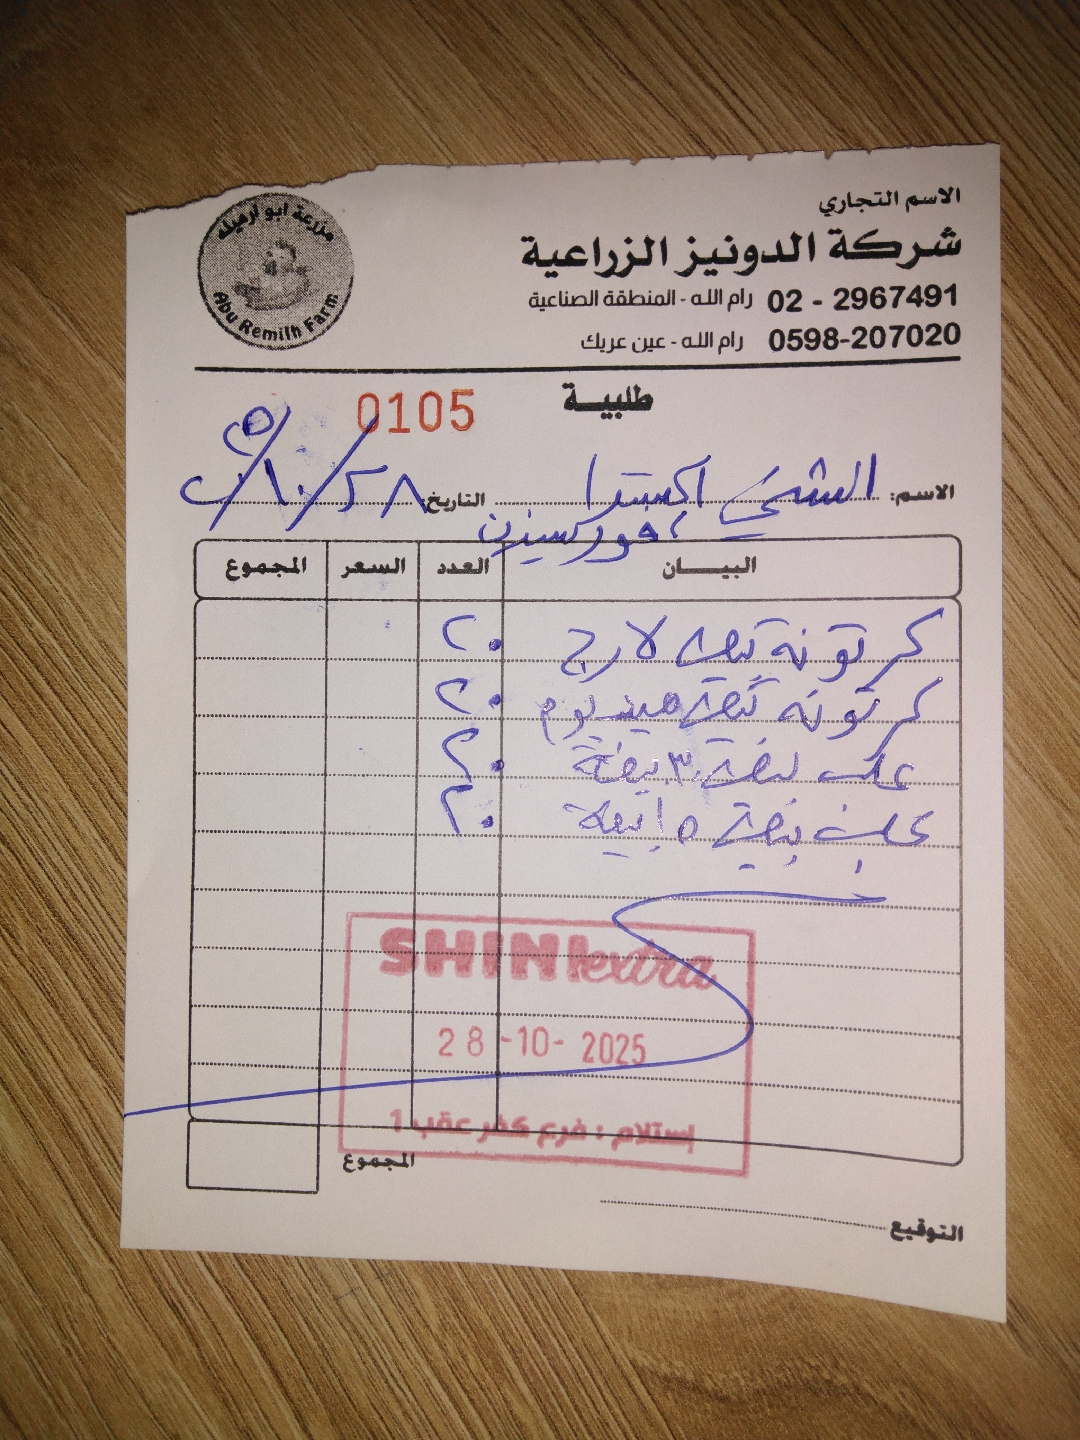 الاسم التجاري
شركة الدونيز الزراعية
02 - 2967491 رام الله - المنطقة الصناعية
0598-207020 رام الله - عين عريك
مزرعة ابو ارميله
Abu Remilh Farm
طلبية
0105
الاسم: الشني اكسترا
التاريخ: ٢٨/١٠/٢٥
البيــــان العدد السعر المجموع
كرتونه بيض لارج ٢٠
كرتونه بيض ميديوم ٢٠
علب بيض ٣٠ بيضة ٢٠
علب بيض ١٥ بيضة ٢٠
SHINI extra
28 -10- 2025
إستلام : فرع كفر عقب 1
المجموع
التوقيع